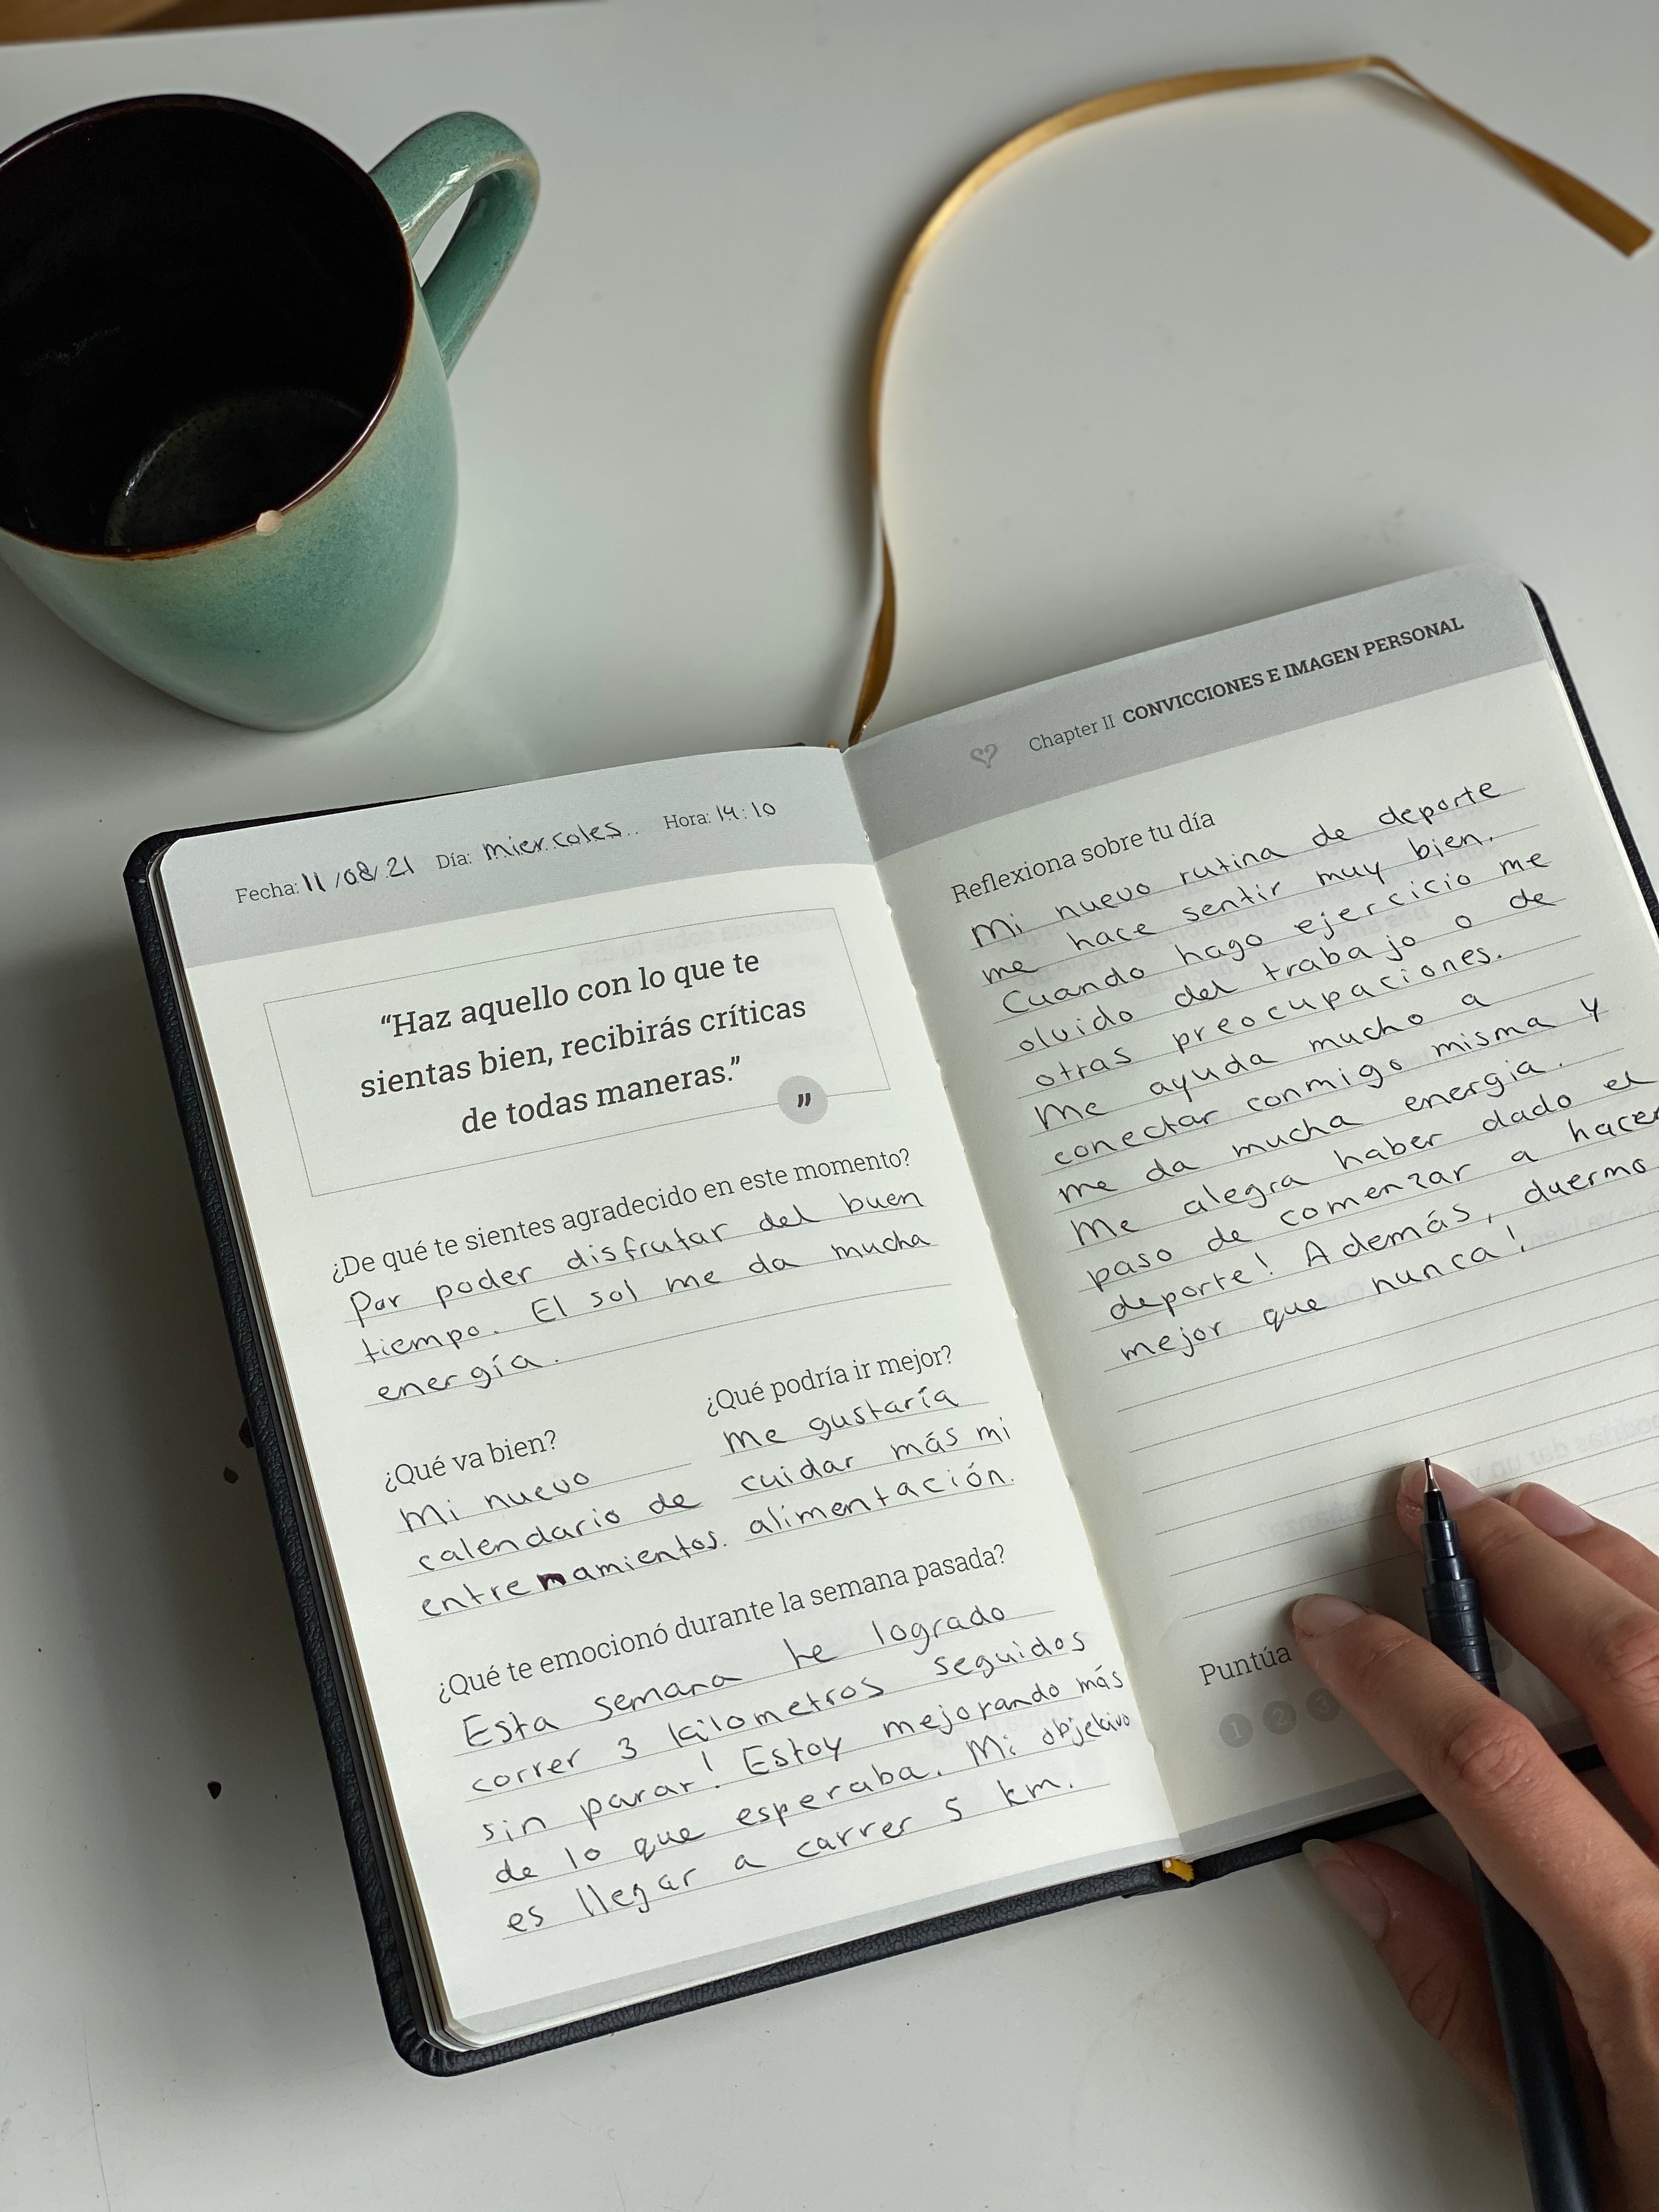 Fecha: 11/08/21 Día: miercoles Hora: 14:10
“Haz aquello con lo que te
sientas bien, recibirás críticas
de todas maneras.”
”
¿De qué te sientes agradecido en este momento?
Por poder disfrutar del buen
tiempo. El sol me da mucha
energía.
¿Qué va bien?
Mi nuevo
calendario de
entrenamientos.
¿Qué podría ir mejor?
Me gustaría
cuidar más mi
alimentación.
¿Qué te emocionó durante la semana pasada?
Esta semana he logrado
correr 3 kilometros seguidos
sin parar! Estoy mejorando más
de lo que esperaba. Mi objetivo
es llegar a correr 5 km.
Chapter II CONVICCIONES E IMAGEN PERSONAL
Reflexiona sobre tu día
Mi nuevo rutina de deporte
me hace sentir muy bien.
Cuando hago ejercicio me
olvido del trabajo o de
otras preocupaciones.
Me ayuda mucho a
conectar conmigo misma y
me da mucha energia.
Me alegra haber dado el
paso de comenzar a hacer
deporte! Además, duermo
mejor que nunca!
Puntúa
1 2 3